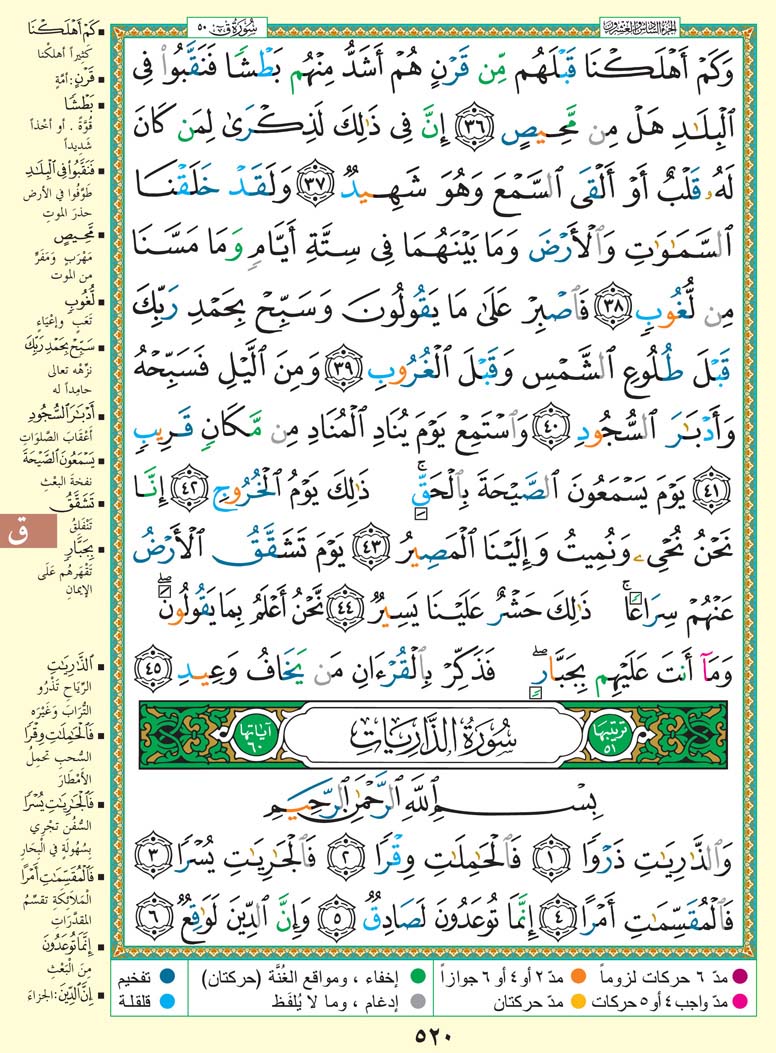 الجزء السادس والعشرون
سُورَةُ قٓ ٥٠
وَكَمْ أَهْلَكْنَا قَبْلَهُم مِّن قَرْنٍ هُمْ أَشَدُّ مِنْهُم بَطْشًا فَنَقَّبُوا۟ فِى
ٱلْبِلَٰدِ هَلْ مِن مَّحِيصٍ ٣٦ إِنَّ فِى ذَٰلِكَ لَذِكْرَىٰ لِمَن كَانَ
لَهُۥ قَلْبٌ أَوْ أَلْقَى ٱلسَّمْعَ وَهُوَ شَهِيدٌ ٣٧ وَلَقَدْ خَلَقْنَا
ٱلسَّمَٰوَٰتِ وَٱلْأَرْضَ وَمَا بَيْنَهُمَا فِى سِتَّةِ أَيَّامٍ وَمَا مَسَّنَا
مِن لُّغُوبٍ ٣٨ فَٱصْبِرْ عَلَىٰ مَا يَقُولُونَ وَسَبِّحْ بِحَمْدِ رَبِّكَ
قَبْلَ طُلُوعِ ٱلشَّمْسِ وَقَبْلَ ٱلْغُرُوبِ ٣٩ وَمِنَ ٱلَّيْلِ فَسَبِّحْهُ
وَأَدْبَٰرَ ٱلسُّجُودِ ٤٠ وَٱسْتَمِعْ يَوْمَ يُنَادِ ٱلْمُنَادِ مِن مَّكَانٍ قَرِيبٍ
٤١ يَوْمَ يَسْمَعُونَ ٱلصَّيْحَةَ بِٱلْحَقِّ ۚ ذَٰلِكَ يَوْمُ ٱلْخُرُوجِ ٤٢ إِنَّا
نَحْنُ نُحْىِۦ وَنُمِيتُ وَإِلَيْنَا ٱلْمَصِيرُ ٤٣ يَوْمَ تَشَقَّقُ ٱلْأَرْضُ
عَنْهُمْ سِرَاعًا ۚ ذَٰلِكَ حَشْرٌ عَلَيْنَا يَسِيرٌ ٤٤ نَّحْنُ أَعْلَمُ بِمَا يَقُولُونَ ۖ
وَمَآ أَنتَ عَلَيْهِم بِجَبَّارٍ ۖ فَذَكِّرْ بِٱلْقُرْءَانِ مَن يَخَافُ وَعِيدِ ٤٥
ترتيبها ٥١
سُورَةُ الذَّارِيَاتِ
آياتها ٦٠
بِسْمِ ٱللَّهِ ٱلرَّحْمَٰنِ ٱلرَّحِيمِ
وَٱلذَّٰرِيَٰتِ ذَرْوًا ١ فَٱلْحَٰمِلَٰتِ وِقْرًا ٢ فَٱلْجَٰرِيَٰتِ يُسْرًا ٣
فَٱلْمُقَسِّمَٰتِ أَمْرًا ٤ إِنَّمَا تُوعَدُونَ لَصَادِقٌ ٥ وَإِنَّ ٱلدِّينَ لَوَٰقِعٌ ٦
كَمْ أَهْلَكْنَا
كثيراً أهلكنا
قَرْنٍ: أمّةٍ
بَطْشًا
قُوَّةً . أو أخْذاً
شَدِيداً
فَنَقَّبُوا فِي ٱلْبِلَٰدِ
طوّفُوا في الأرض
حذرَ الموتِ
مَّحِيصٍ
مَهْرَبٍ وَمَفَرٍّ
مِن الموت
لُّغُوبٍ
تَعَبٍ وإعْيَاءٍ
سَبِّحْ بِحَمْدِ رَبِّكَ
نزّهْه تعالى
حامِداً له
أَدْبَٰرَ ٱلسُّجُودِ
أعْقَابَ الصَّلوَاتِ
يَسْمَعُونَ ٱلصَّيْحَةَ
نفخةَ البعْثِ
تَشَقَّقُ
تَنْفَلِقُ
بِجَبَّارٍ
تَقْهَرُهُم عَلَى
الإيمانِ
ق
ٱلذَّٰرِيَٰتِ
الرِّيَاحِ تَذْرُو
التُّرَابَ وَغَيْرَه
فَٱلْحَٰمِلَٰتِ وِقْرًا
السُّحبِ تحمِلُ
الأمْطَارَ
فَٱلْجَٰرِيَٰتِ يُسْرًا
السُّفُنِ تَجْرِي
بِسُهُولَةٍ في الْبِحَارِ
فَٱلْمُقَسِّمَٰتِ أَمْرًا
الْمَلائكَةِ تقسِّمُ
المقدّرَاتِ
إِنَّمَا تُوعَدُونَ
مِنَ الْبَعْثِ
إِنَّ ٱلدِّينَ: الجزاءَ
مدّ ٦ حركات لزوماً
مدّ ٢ أو ٤ أو ٦ جوازاً
إخفاء ، ومواقع الغُنَّة (حركتان)
تفخيم
مدّ واجب ٤ أو ٥ حركات
مدّ حركتان
إدغام ، وما لا يُلفَظ
قلقلة
٥٢٠